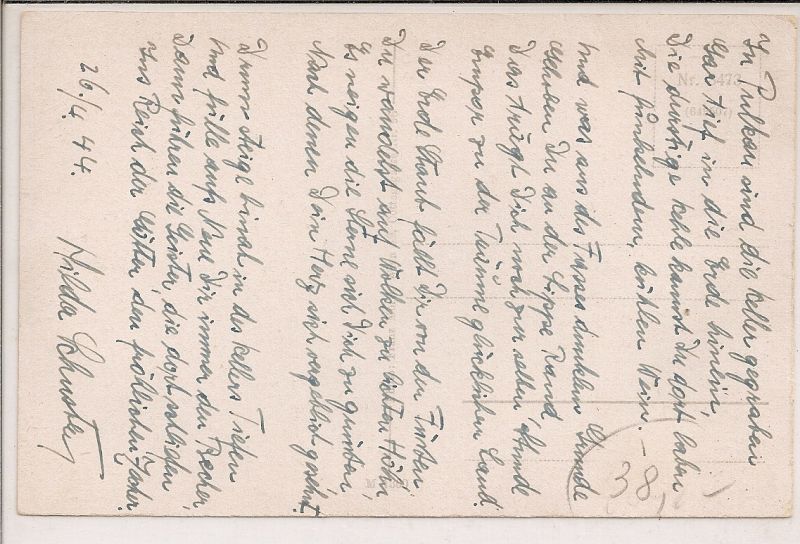 In Pulkau sind die Keller gegraben
Gar tief in die Erde hinein,
Die durstige Kehle kannst Du dort laben
Mit funkelndem, kühlen Wein. –
Und was aus des Fasses dunklem Grunde
Gehoben Du an der Lippe Rand
Das trägt Dich noch zur selben Stunde
Empor zu der Träume glücklichem Land.
Der Erde Staub fällt Dir von den Füßen
Du wandelst auf Wolken zu lichten Höhn
Es neigen die Sterne sich Dich zu grüßen
Nach denen Dein Herz sich vergeblich gesehnt.
Drum steige hinab in des Kellers Tiefen
Und fülle aufs Neue Dir immer den Becher,
Dann führen die Geister, die dort schliefen
Ins Reich der Götter den fröhlichen Zecher.
26./4. 44.
Hilda Schuster
38,–
Nr.